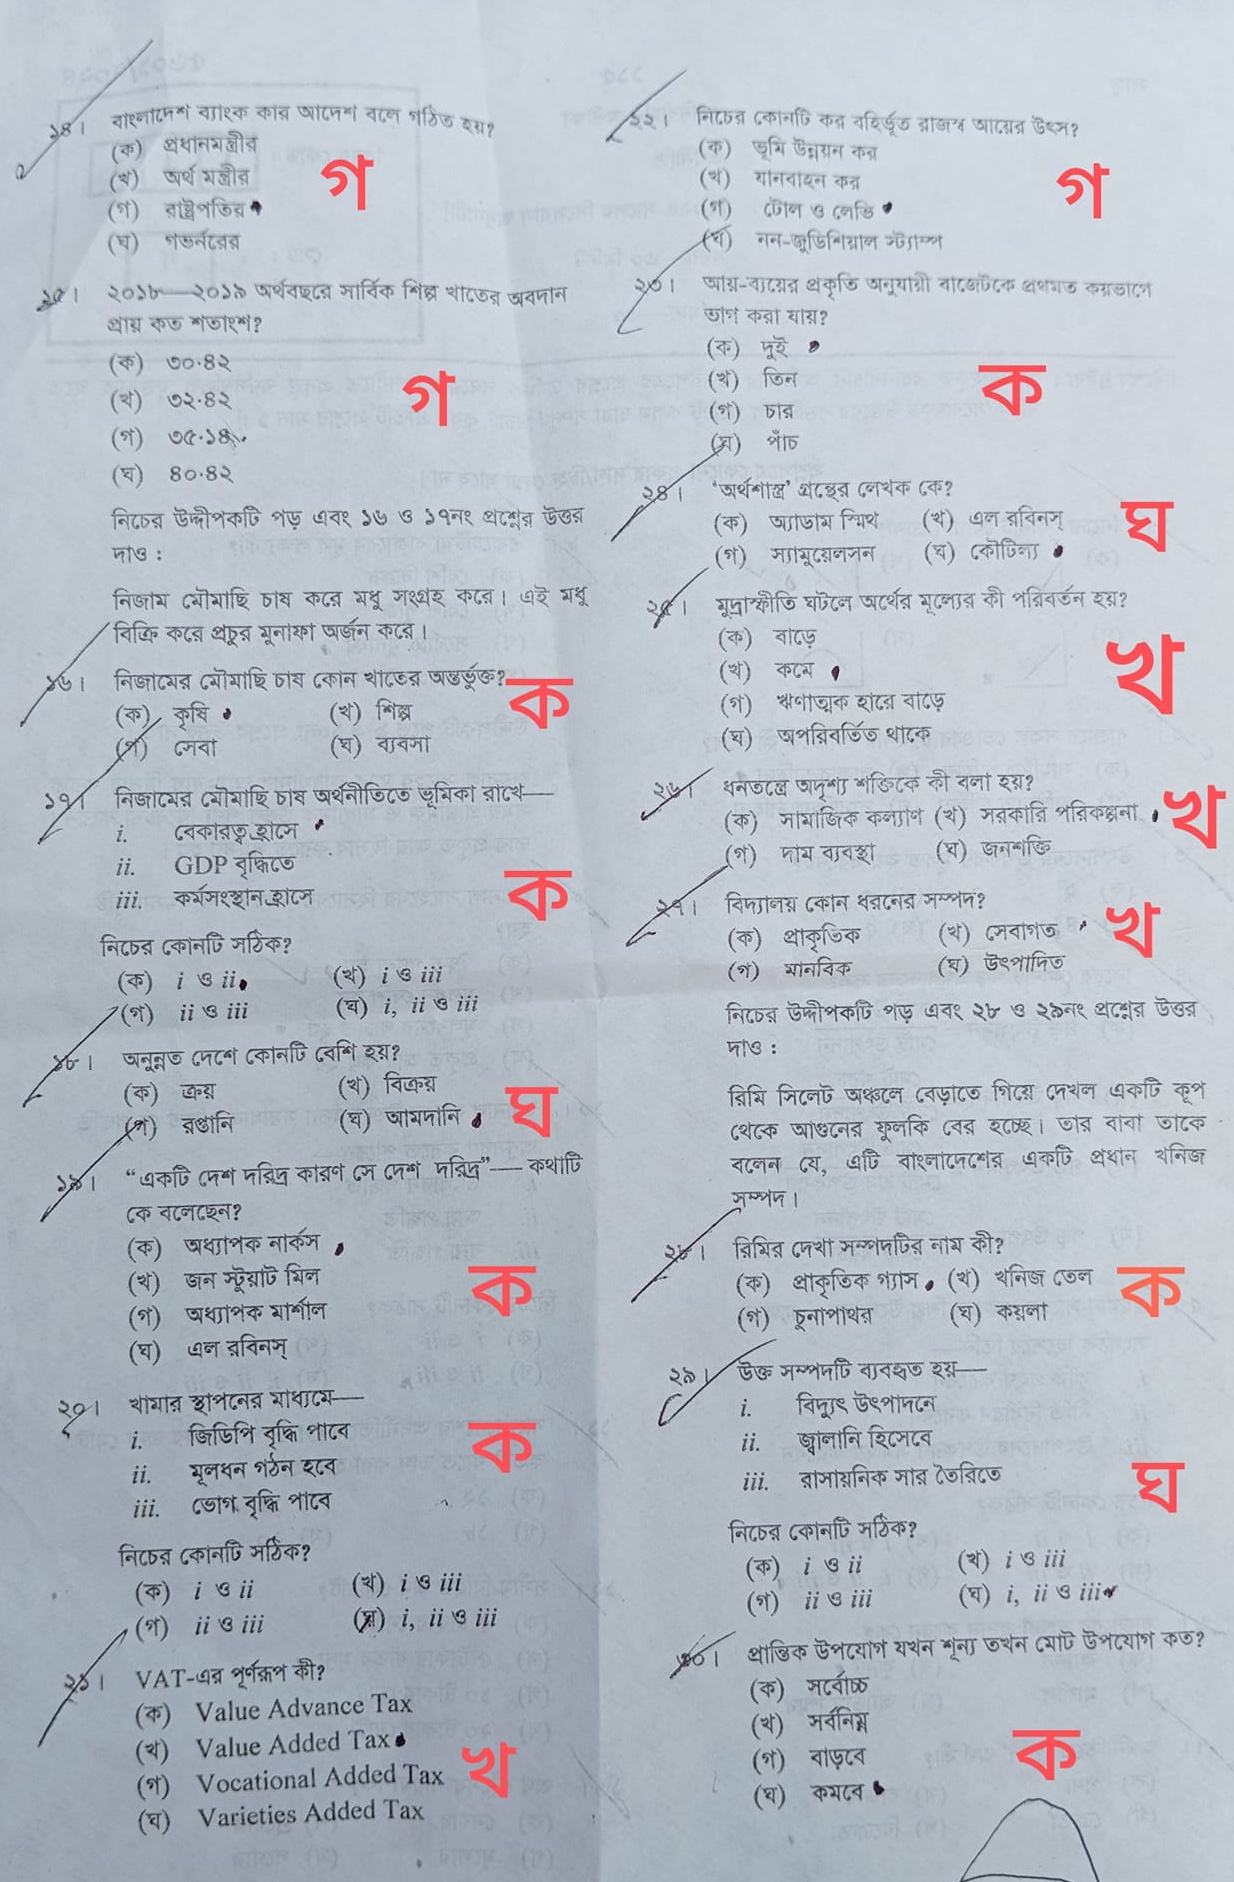 ১৪। বাংলাদেশ ব্যাংক কার আদেশ বলে গঠিত হয়?
(ক) প্রধানমন্ত্রীর
(খ) অর্থ মন্ত্রীর
(গ) রাষ্ট্রপতির
(ঘ) গভর্নরের
গ
১৫। ২০১৮—২০১৯ অর্থবছরে সার্বিক শিল্প খাতের অবদান
প্রায় কত শতাংশ?
(ক) ৩০·৪২
(খ) ৩২·৪২
(গ) ৩৫·১৪
(ঘ) ৪০·৪২
গ
নিচের উদ্দীপকটি পড় এবং ১৬ ও ১৭নং প্রশ্নের উত্তর
দাও :
নিজাম মৌমাছি চাষ করে মধু সংগ্রহ করে। এই মধু
বিক্রি করে প্রচুর মুনাফা অর্জন করে।
১৬। নিজামের মৌমাছি চাষ কোন খাতের অন্তর্ভুক্ত?
(ক) কৃষি (খ) শিল্প
(গ) সেবা (ঘ) ব্যবসা
ক
১৭। নিজামের মৌমাছি চাষ অর্থনীতিতে ভূমিকা রাখে—
i. বেকারত্ব হ্রাসে
ii. GDP বৃদ্ধিতে
iii. কর্মসংস্থান হ্রাসে
নিচের কোনটি সঠিক?
(ক) i ও ii (খ) i ও iii
(গ) ii ও iii (ঘ) i, ii ও iii
ক
১৮। অনুন্নত দেশে কোনটি বেশি হয়?
(ক) ক্রয় (খ) বিক্রয়
(গ) রপ্তানি (ঘ) আমদানি
ঘ
১৯। “একটি দেশ দরিদ্র কারণ সে দেশ দরিদ্র”— কথাটি
কে বলেছেন?
(ক) অধ্যাপক নার্কস
(খ) জন স্টুয়ার্ট মিল
(গ) অধ্যাপক মার্শাল
(ঘ) এল রবিনস্
ক
২০। খামার স্থাপনের মাধ্যমে—
i. জিডিপি বৃদ্ধি পাবে
ii. মূলধন গঠন হবে
iii. ভোগ বৃদ্ধি পাবে
নিচের কোনটি সঠিক?
(ক) i ও ii (খ) i ও iii
(গ) ii ও iii (ঘ) i, ii ও iii
ক
২১। VAT-এর পূর্ণরূপ কী?
(ক) Value Advance Tax
(খ) Value Added Tax
(গ) Vocational Added Tax
(ঘ) Varieties Added Tax
খ
২২। নিচের কোনটি কর বহির্ভূত রাজস্ব আয়ের উৎস?
(ক) ভূমি উন্নয়ন কর
(খ) যানবাহন কর
(গ) টোল ও লেভি
(ঘ) নন-জুডিশিয়াল স্ট্যাম্প
গ
২৩। আয়-ব্যয়ের প্রকৃতি অনুযায়ী বাজেটকে প্রথমত কয়ভাগে
ভাগ করা যায়?
(ক) দুই
(খ) তিন
(গ) চার
(ঘ) পাঁচ
ক
২৪। ‘অর্থশাস্ত্র’ গ্রন্থের লেখক কে?
(ক) অ্যাডাম স্মিথ (খ) এল রবিনস্
(গ) স্যামুয়েলসন (ঘ) কৌটিল্য
ঘ
২৫। মুদ্রাস্ফীতি ঘটলে অর্থের মূল্যের কী পরিবর্তন হয়?
(ক) বাড়ে
(খ) কমে
(গ) ঋণাত্মক হারে বাড়ে
(ঘ) অপরিবর্তিত থাকে
খ
২৬। ধনতন্ত্রে অদৃশ্য শক্তিকে কী বলা হয়?
(ক) সামাজিক কল্যাণ (খ) সরকারি পরিকল্পনা
(গ) দাম ব্যবস্থা (ঘ) জনশক্তি
খ
২৭। বিদ্যালয় কোন ধরনের সম্পদ?
(ক) প্রাকৃতিক (খ) সেবাগত
(গ) মানবিক (ঘ) উৎপাদিত
খ
নিচের উদ্দীপকটি পড় এবং ২৮ ও ২৯নং প্রশ্নের উত্তর
দাও :
রিমি সিলেট অঞ্চলে বেড়াতে গিয়ে দেখল একটি কূপ
থেকে আগুনের ফুলকি বের হচ্ছে। তার বাবা তাকে
বলেন যে, এটি বাংলাদেশের একটি প্রধান খনিজ
সম্পদ।
২৮। রিমির দেখা সম্পদটির নাম কী?
(ক) প্রাকৃতিক গ্যাস (খ) খনিজ তেল
(গ) চুনাপাথর (ঘ) কয়লা
ক
২৯। উক্ত সম্পদটি ব্যবহৃত হয়—
i. বিদ্যুৎ উৎপাদনে
ii. জ্বালানি হিসেবে
iii. রাসায়নিক সার তৈরিতে
নিচের কোনটি সঠিক?
(ক) i ও ii (খ) i ও iii
(গ) ii ও iii (ঘ) i, ii ও iii
ঘ
৩০। প্রান্তিক উপযোগ যখন শূন্য তখন মোট উপযোগ কত?
(ক) সর্বোচ্চ
(খ) সর্বনিম্ন
(গ) বাড়বে
(ঘ) কমবে
ক